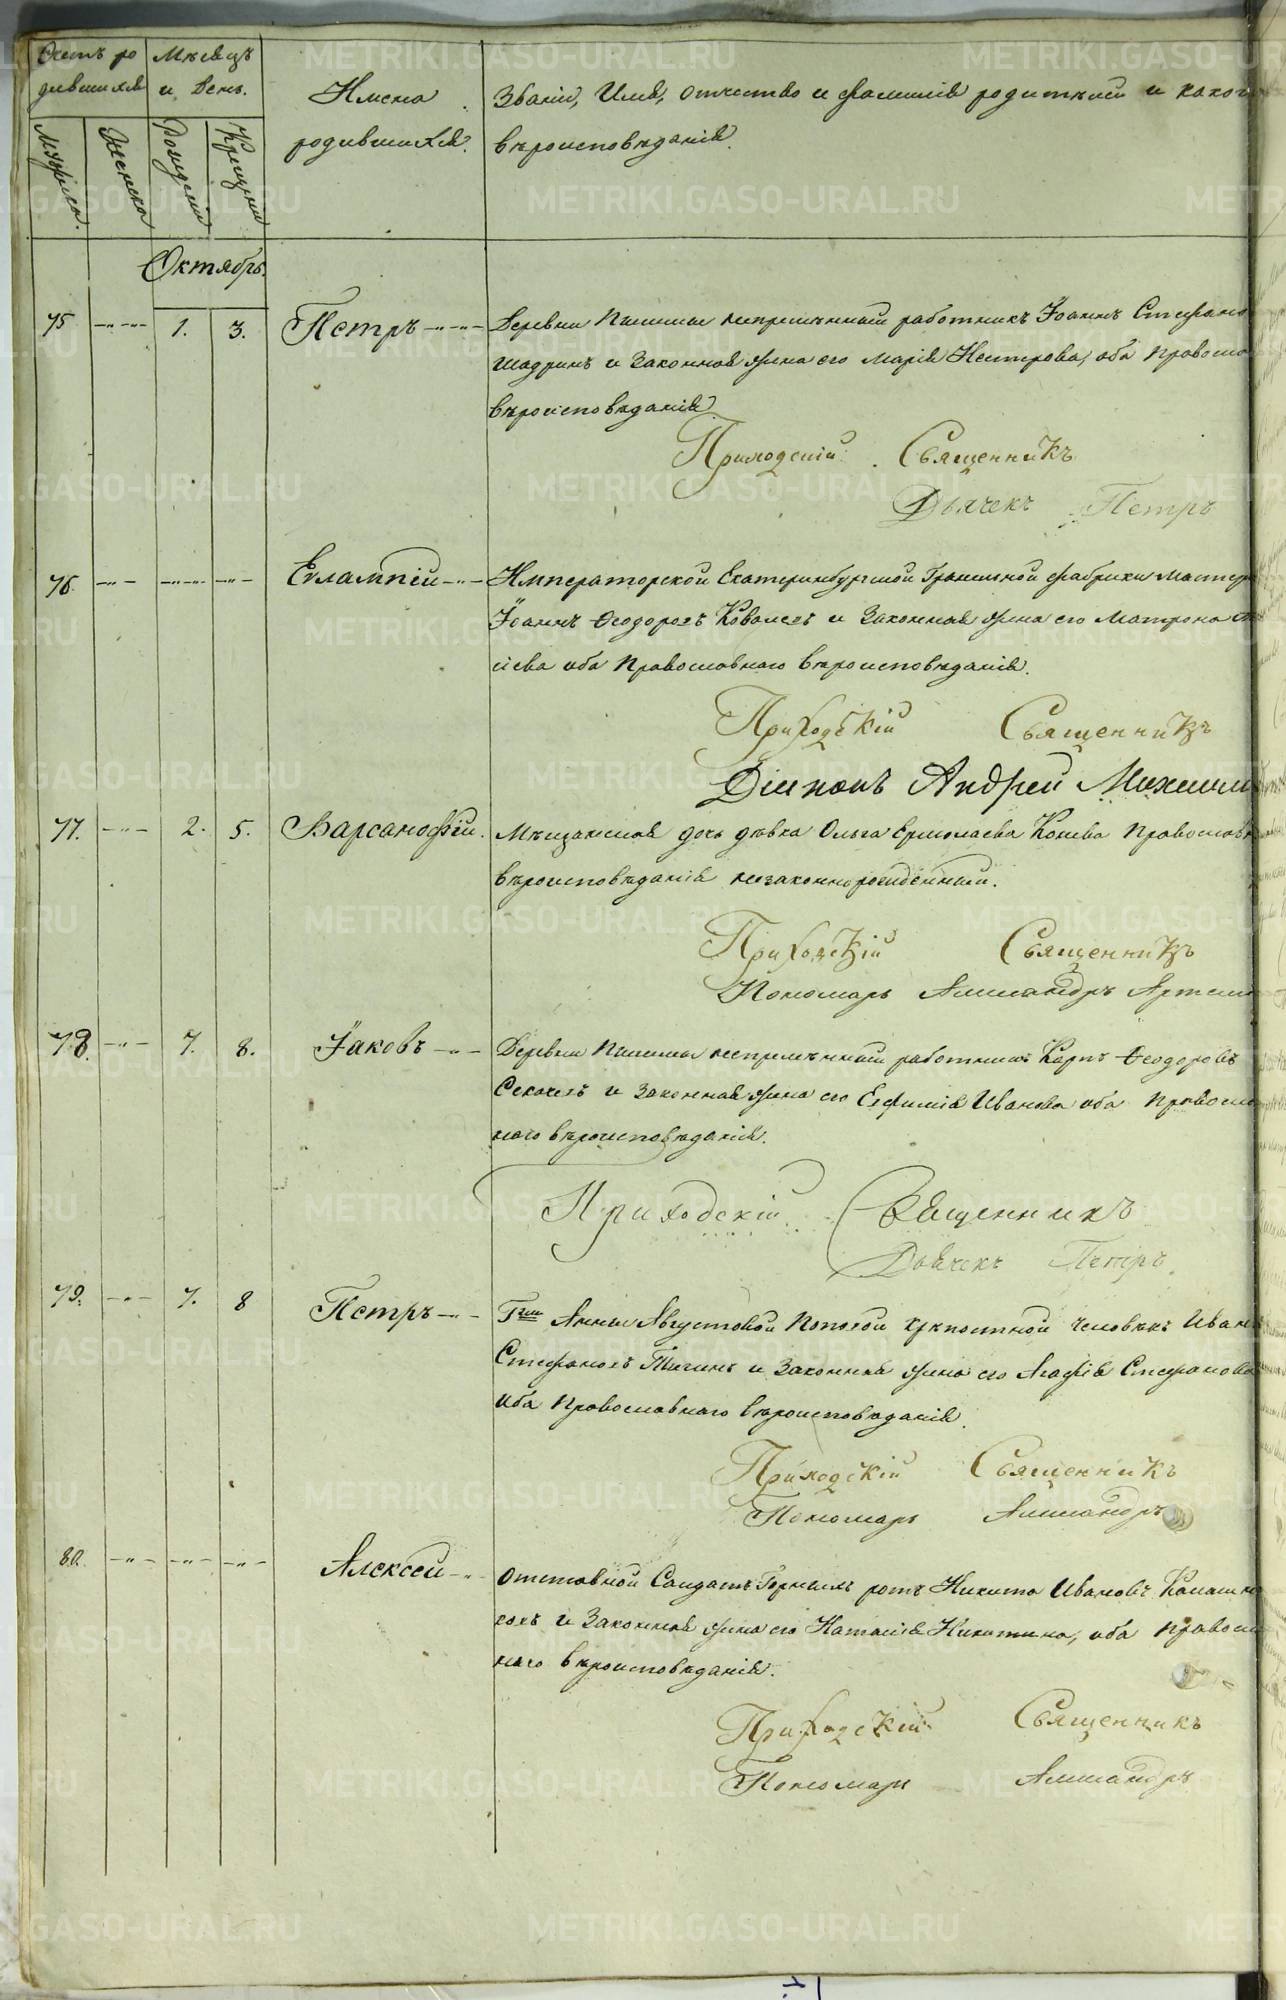 Счетъ ро
дившихся
Мѣсяцъ
и День.
Имена
родившихся.
Званіе, Имя, отчество и фамилія родителей и какого
вѣроисповѣданія.
Мужеска.
Женска
Рожденія
Крещенія
Октябрь.
75 1. 3. Петръ Деревни Пышмы непремѣнный работникъ Іоаннъ Стефано
Шадринъ и законная жена его Марія Петрова, оба Правосла
вѣроисповѣданія
Приходскій Священникъ
Дьячекъ Петръ
76. Евлампій Императорской Екатеринбургской Гранильной фабрики мастер
Іоаннъ Ѳеодоровъ Ковалевъ и законная жена его Матрона
сіева оба Православнаго вѣроисповѣданія.
Приходскій Священникъ
Діаконъ Андрей Михаил
77. 2. 5. Варсанофій. Мѣщанская дочь дѣвка Ольга Ермолаева Конева Православн
вѣроисповѣданія незаконнорожденный.
Приходскій Священникъ
Пономарь Александръ Артем
78. 7. 8. Іаковъ Деревни Пышмы непремѣнный работникъ Карпъ Ѳеодоровъ
Секачевъ и законная жена его Евфимія Иванова оба Правосла
наго вѣроисповѣданія.
Приходскій Священникъ
Дьячекъ Петръ
79. 7. 8 Петръ Гжи Анны Августовой Поповой крѣпостной человѣкъ Иван
Стефановъ Тягинъ и законная жена его Агафія Стефанова
оба Православнаго вѣроисповѣданія.
Приходскій Священникъ
Пономарь Александръ
80. Алексей Отставной Солдатъ Горныхъ ротъ Никита Ивановъ Калашни
ковъ и законная жена его Наталія Никитина, оба Правосла
наго вѣроисповѣданія.
Приходскій Священникъ
Пономарь Александръ
METRIKI.GASO-URAL.RU